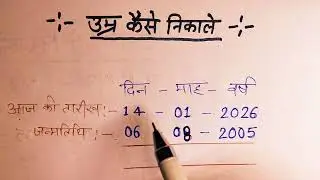 -:- उम्र कैसे निकाले -:-
दिन - माह - वर्ष
आज की तारीख :- 14 - 01 - 2026
जन्मतिथि :- 06 - 08 - 2005